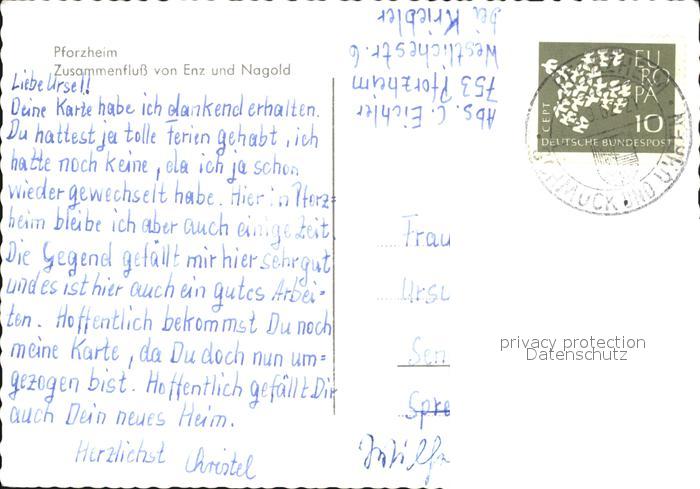 Pforzheim
Zusammenfluß von Enz und Nagold
Liebe Ursel!
Deine Karte habe ich dankend erhalten.
Du hattest ja tolle Ferien gehabt, ich
hatte noch keine, da ich ja schon
wieder gewechselt habe. Hier in Pforz-
heim bleibe ich aber auch einige Zeit.
Die Gegend gefällt mir hier sehr gut
und es ist hier auch ein gutes Arbei-
ten. Hoffentlich bekommst Du noch
meine Karte, da Du doch nun um-
gezogen bist. Hoffentlich gefällt Dir
auch Dein neues Heim.
Herzlichst Christel
Abs. C. Eichler
753 Pforzheim
Westlichestr. 6
bei Kriebler
EUROPA
CEPT
10
DEUTSCHE BUNDESPOST
SCHMUCK UND UHREN
Frau
Ursu
Sen
Spre
privacy protection
Datenschutz